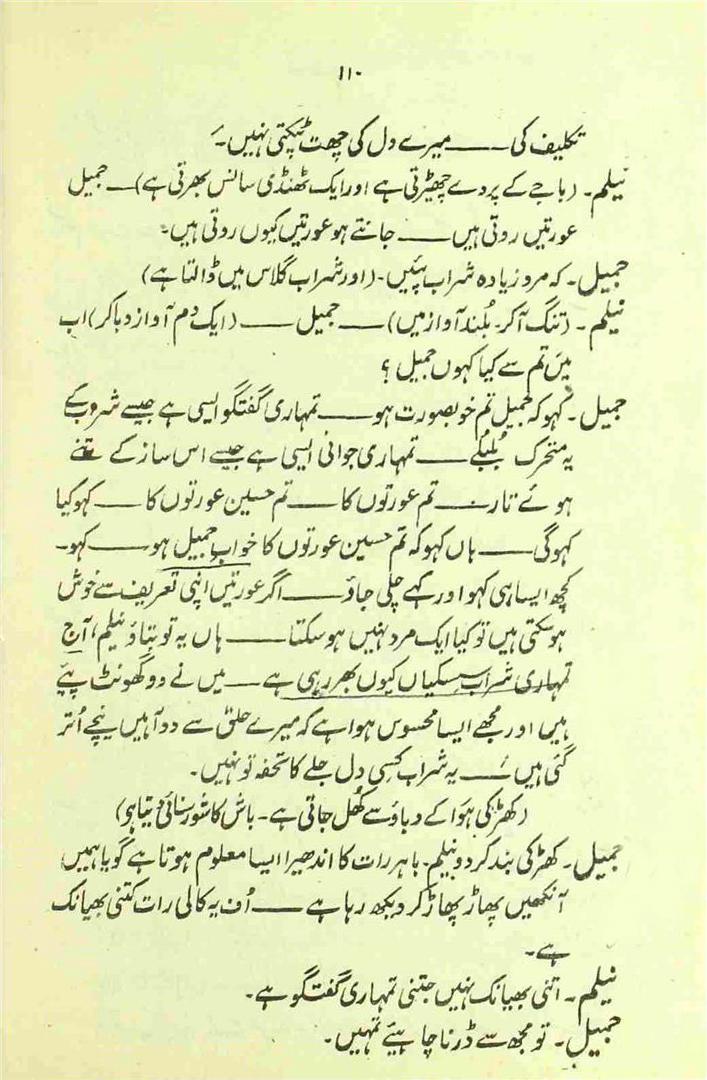 ۱۱۰
تکلیف کی ـــــ میرے دل کی چھت ٹپکتی نہیں۔
نیلم۔ (باجے کے پردے چھیڑتی ہے اور ایک ٹھنڈی سانس بھرتی ہے) ــــ جمیل
عورتیں روتی ہیں ـــــ جانتے ہو عورتیں کیوں روتی ہیں۔
جمیل۔ کہ مرد زیادہ شراب پئیں۔ (اور شراب گلاس میں ڈالتا ہے)
نیلم۔ (تنگ آکر۔ بلند آواز میں) ــــ جمیل ــــ (ایک دم آواز دبا کر) اب
میں تم سے کیا کہوں جمیل ؟
جمیل۔ کہو کہ جمیل تم خوبصورت ہو ــــ تمہاری گفتگو ایسی ہے جیسے شروب کے
یہ متحرک بُلبلے ــــ تمہاری جوانی ایسی ہے جیسے اس ساز کے تنے
ہوئے تار ــــ تم عورتوں کا ــــ تم حسین عورتوں کا ــــ کہو کیا
کہو گی ــــ ہاں کہو کہ تم حسین عورتوں کا خوابِ جمیل ہو ــــ کہو۔
کچھ ایسا ہی کہو اور کہے چلی جاؤ ــــ اگر عورتیں اپنی تعریف سے خوش
ہو سکتی ہیں تو کیا ایک مرد نہیں ہو سکتا ــــ ہاں یہ تو بتاؤ نیلم، آج
تمہاری شراب سسکیاں کیوں بھر رہی ہے ــــ میں نے دو گھونٹ پیئے
ہیں اور مجھے ایسا محسوس ہوا ہے کہ میرے حلق سے دو آہیں نیچے اُتر
گئی ہیں ــــ یہ شراب کسی دِل جلے کا تحفہ تو نہیں۔
(کھڑکی ہوا کے دباؤ سے کھُل جاتی ہے۔ باش کا شور سنائی دیتا ہو)
جمیل۔ کھڑکی بند کر دو نیلم۔ باہر رات کا اندھیرا ایسا معلوم ہوتا ہے گویا ہمیں
آنکھیں پھاڑ پھاڑ کر دیکھ رہا ہے ــــ اُف یہ کالی رات کتنی بھیانک
ہے۔
نیلم۔ اتنی بھیانک نہیں جتنی تمہاری گفتگو ہے۔
جمیل۔ تو مجھ سے ڈرنا چاہیئے تمہیں۔